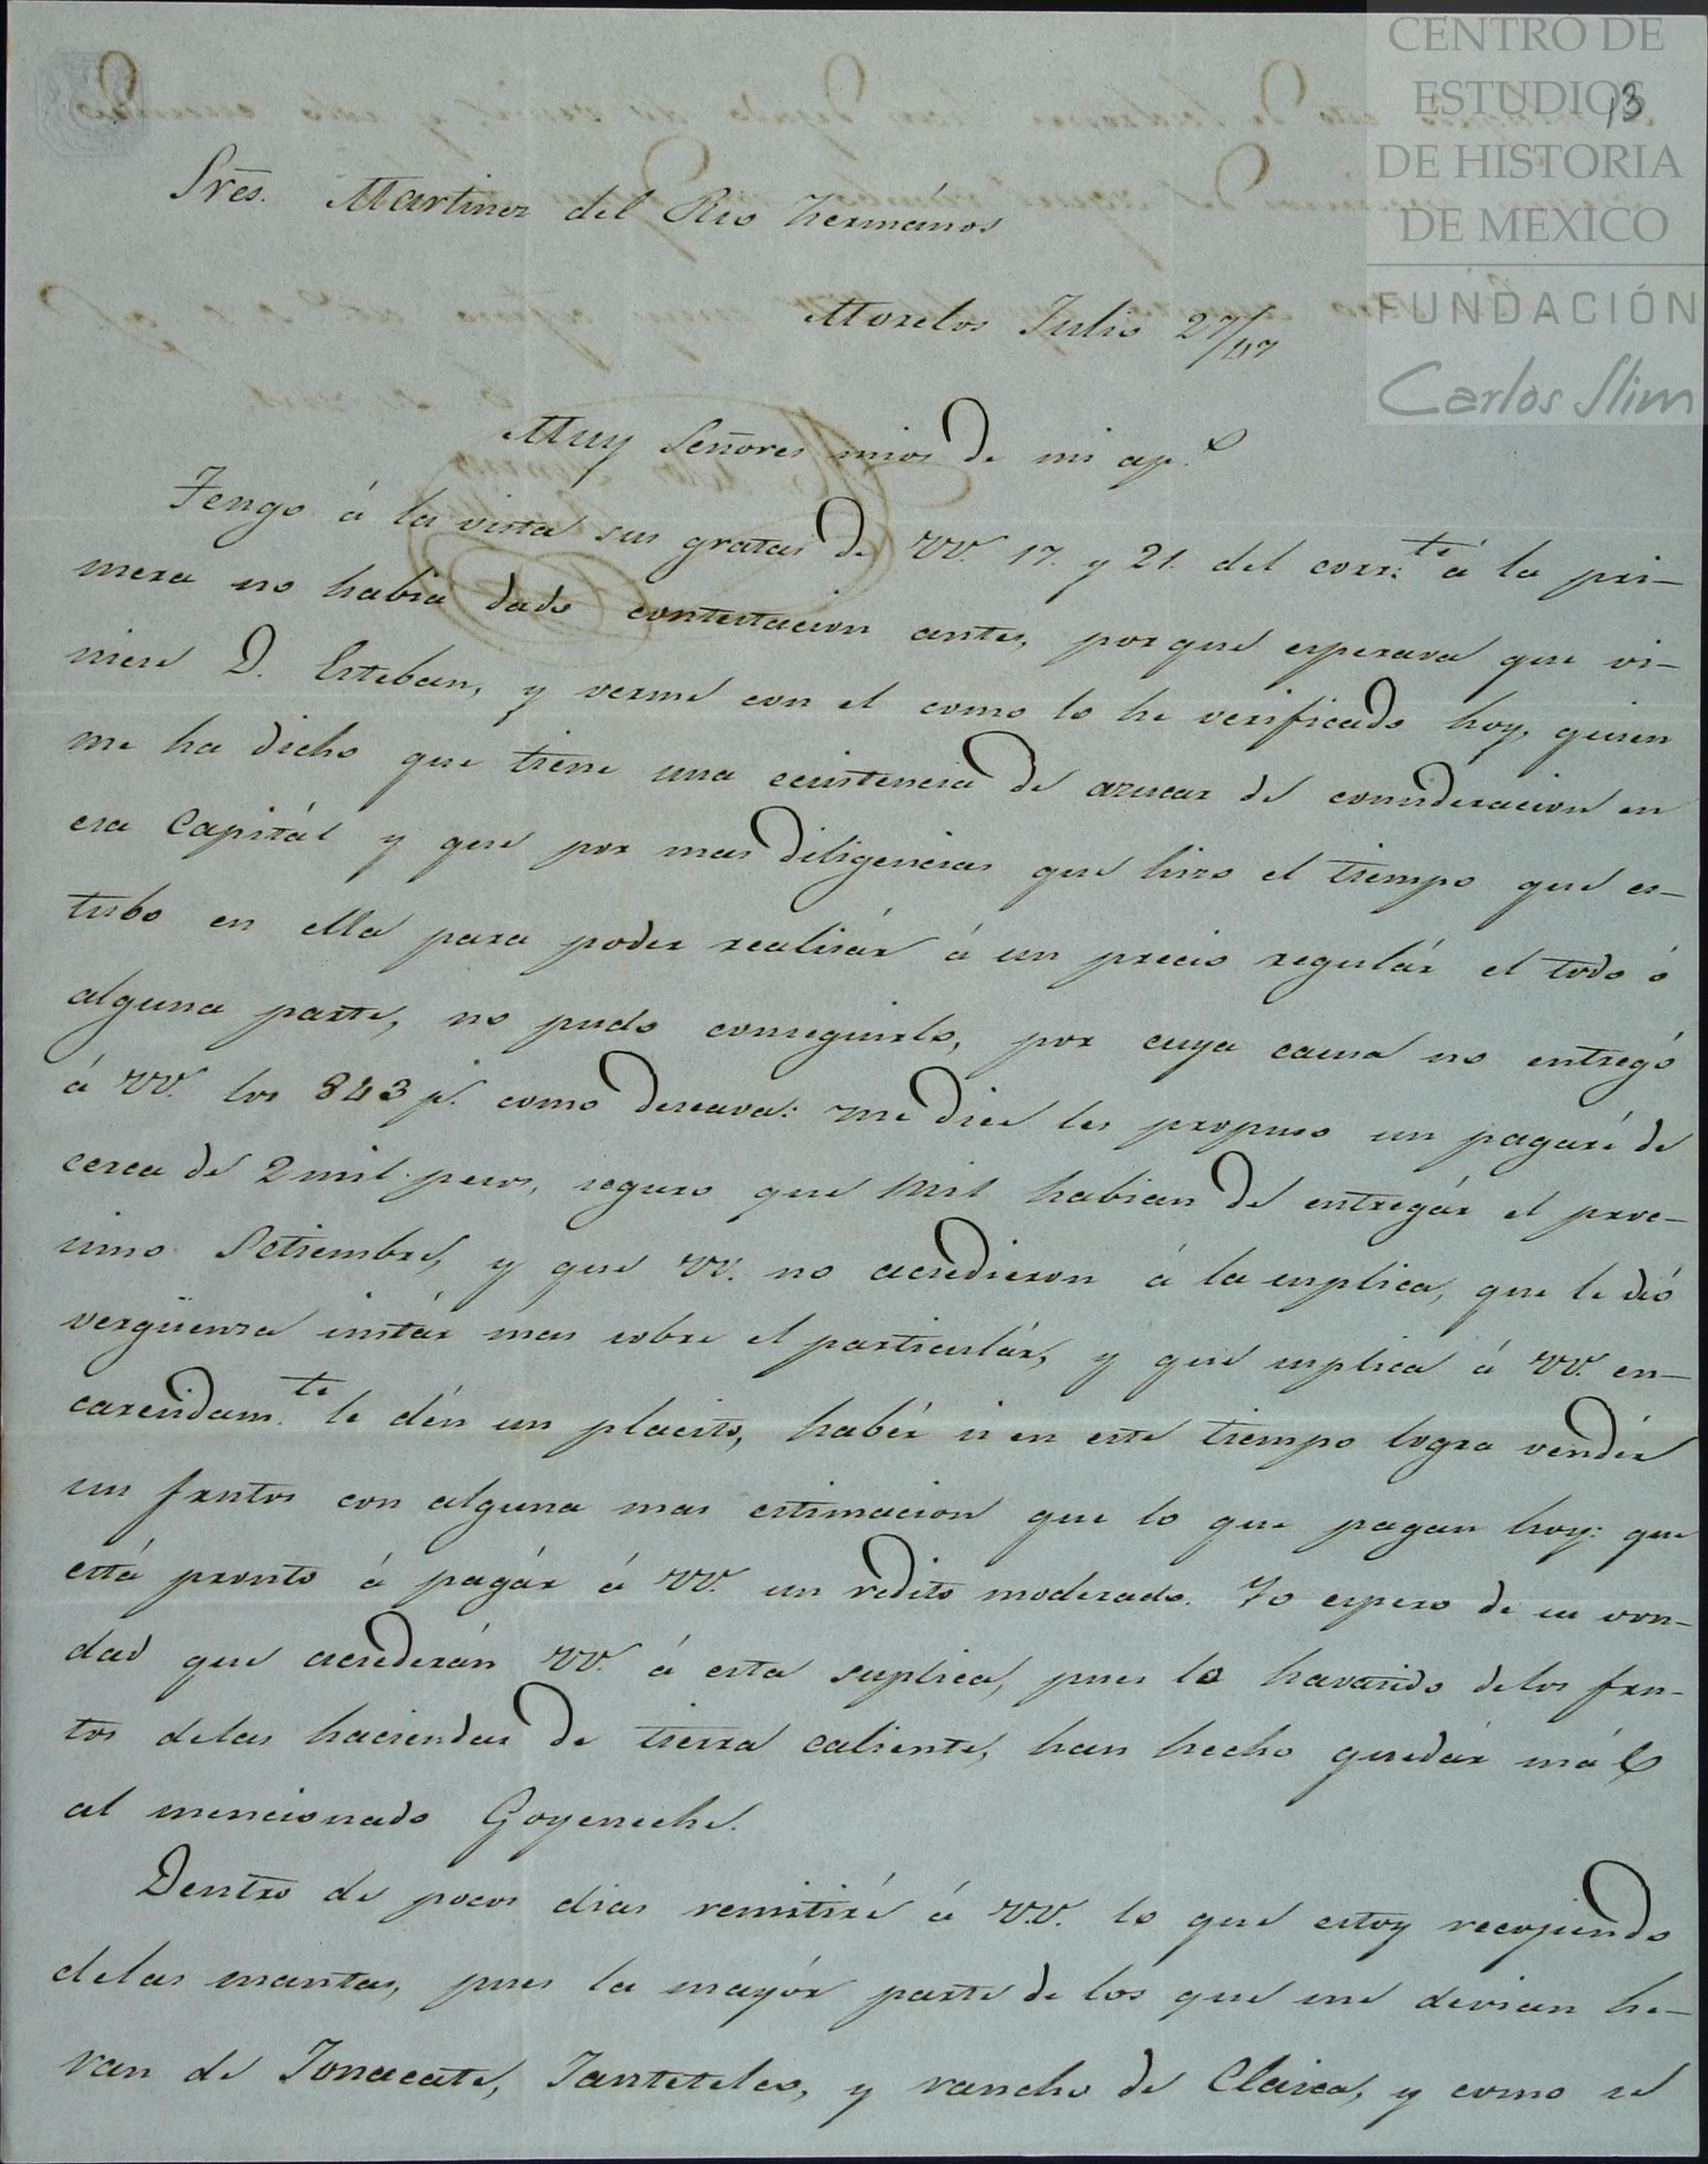 CENTRO DE
ESTUDIOS
DE HISTORIA
DE MEXICO
FUNDACIÓN
Carlos Slim
13
Sres. Martinez del Rio hermános
Morelos Julio 27/47
Muy Señores mios de mi ap.o
Tengo á la vista sus gratas de VV. 17. y 21. del corr.te á la pri-
mera no habia dado contestacion antes, por que esperava que vi-
niese D. Esteban, y verme con el como lo he verificado hoy, quien
me ha dicho que tiene una ecsistencia de azucar de consideracion en
esa Capitál y que por mas diligencias que hizo el tiempo que es-
tubo en ella para poder realisár á un precio regulár el todo ó
alguna parte, no pudo conseguirlo, por cuya causa no entregó
á VV. los 843 p.s como deseava: me dice les propuso un pagaré de
cerca de 2 mil pesos, seguro que mil habian de entregár el proc-
simo Setiembre, y que VV. no accedieron á la suplica, que le dió
vergüenza instár mas sobre el particulár, y que suplica á VV. en-
carecidam.te le dén un placito, habér si en este tiempo logra vendér
sus frutos con alguna mas estimacion que lo que pagan hoy: que
está pronto á pagár á VV. un redito moderado. Yo espero de su von-
dad que accederán VV. á esta suplica, pues lo havatido delos fru-
tos delas haciendas de tierra caliente, han hecho quedár mál
al mencionado Goyeneche.
Dentro de pocos dias remitiré á V.V. lo que estoy recojiendo
delas mantas, pues la mayór parte de los que me devian he-
ran de Jonacate, Jantetelco, y rancho de Claica, y como se